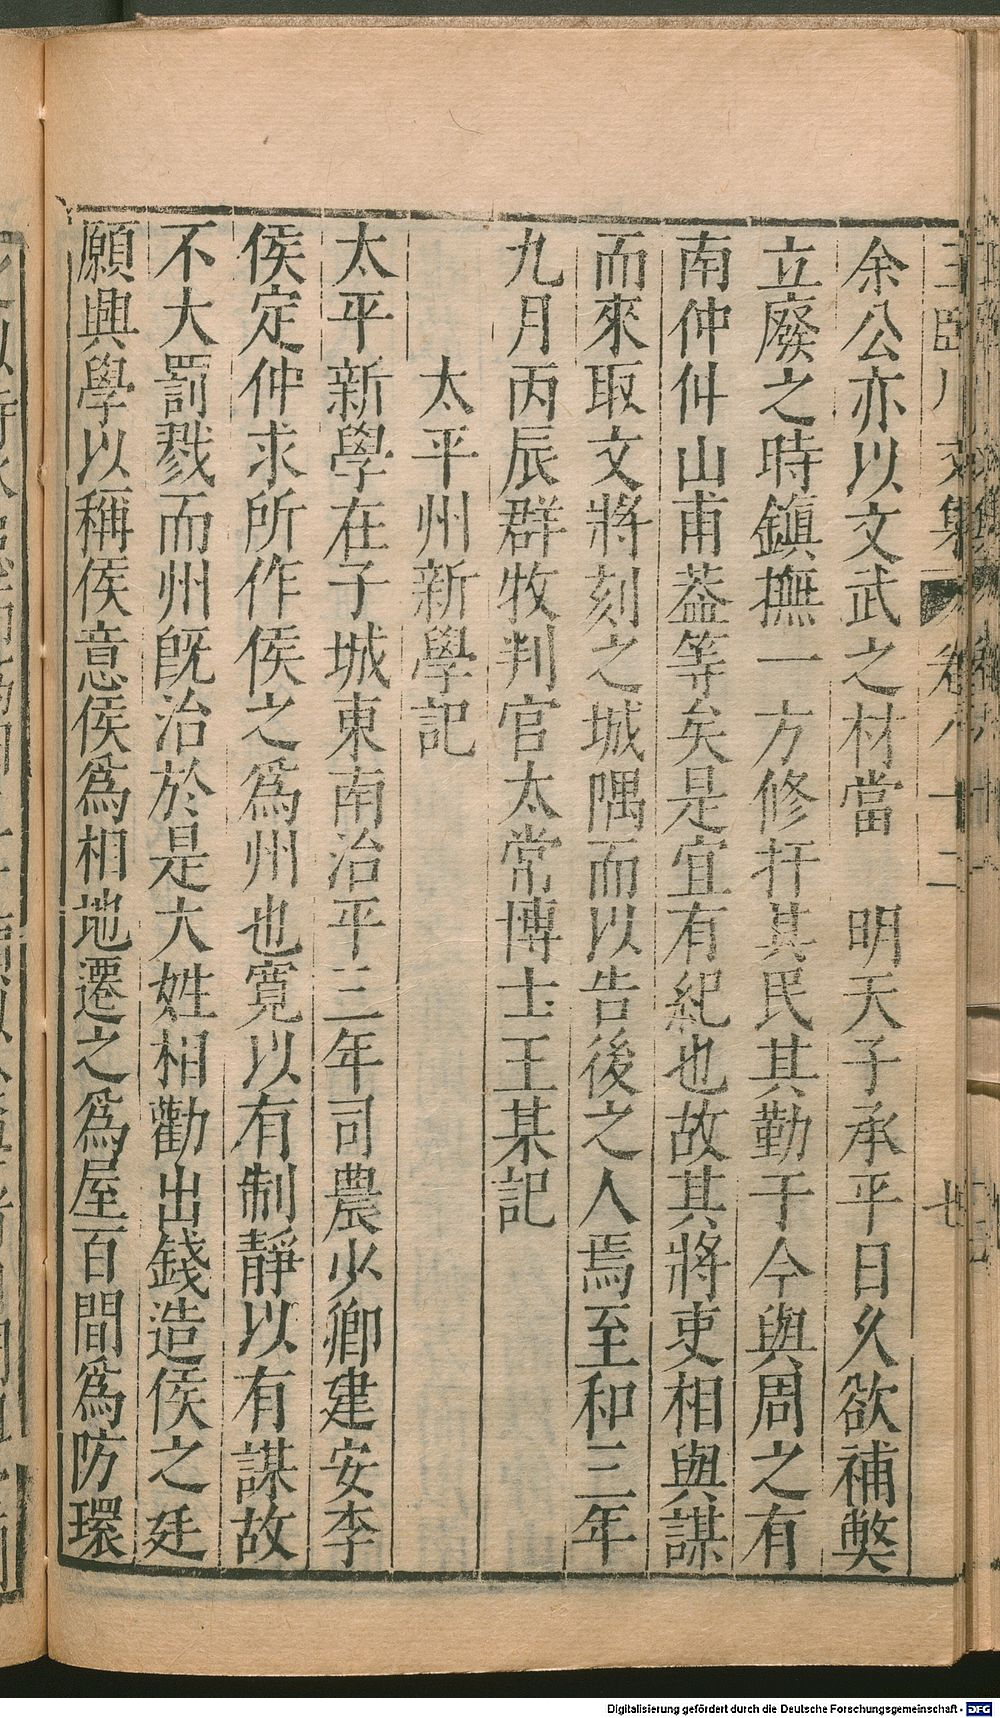 余公亦以文武之材當　明天子承平日久欲補獘
立廢之時鎮撫一方修扞其民其勤于今與周之有
南仲仲山甫葢等矣是宜有紀也故其將吏相與謀
而來取文將刻之城隅而以告後之人焉至和三年
九月丙辰群牧判官太常博士王某記
太平州新學記
太平新學在子城東南治平三年司農少卿建安李
侯定仲求所作侯之爲州也寬以有制靜以有謀故
不大罰戮而州旣治於是大姓相勸出錢造侯之廷
願興學以稱侯意侯爲相地遷之爲屋百間爲防環
Digitalisierung gefördert durch die Deutsche Forschungsgemeinschaft - DFG